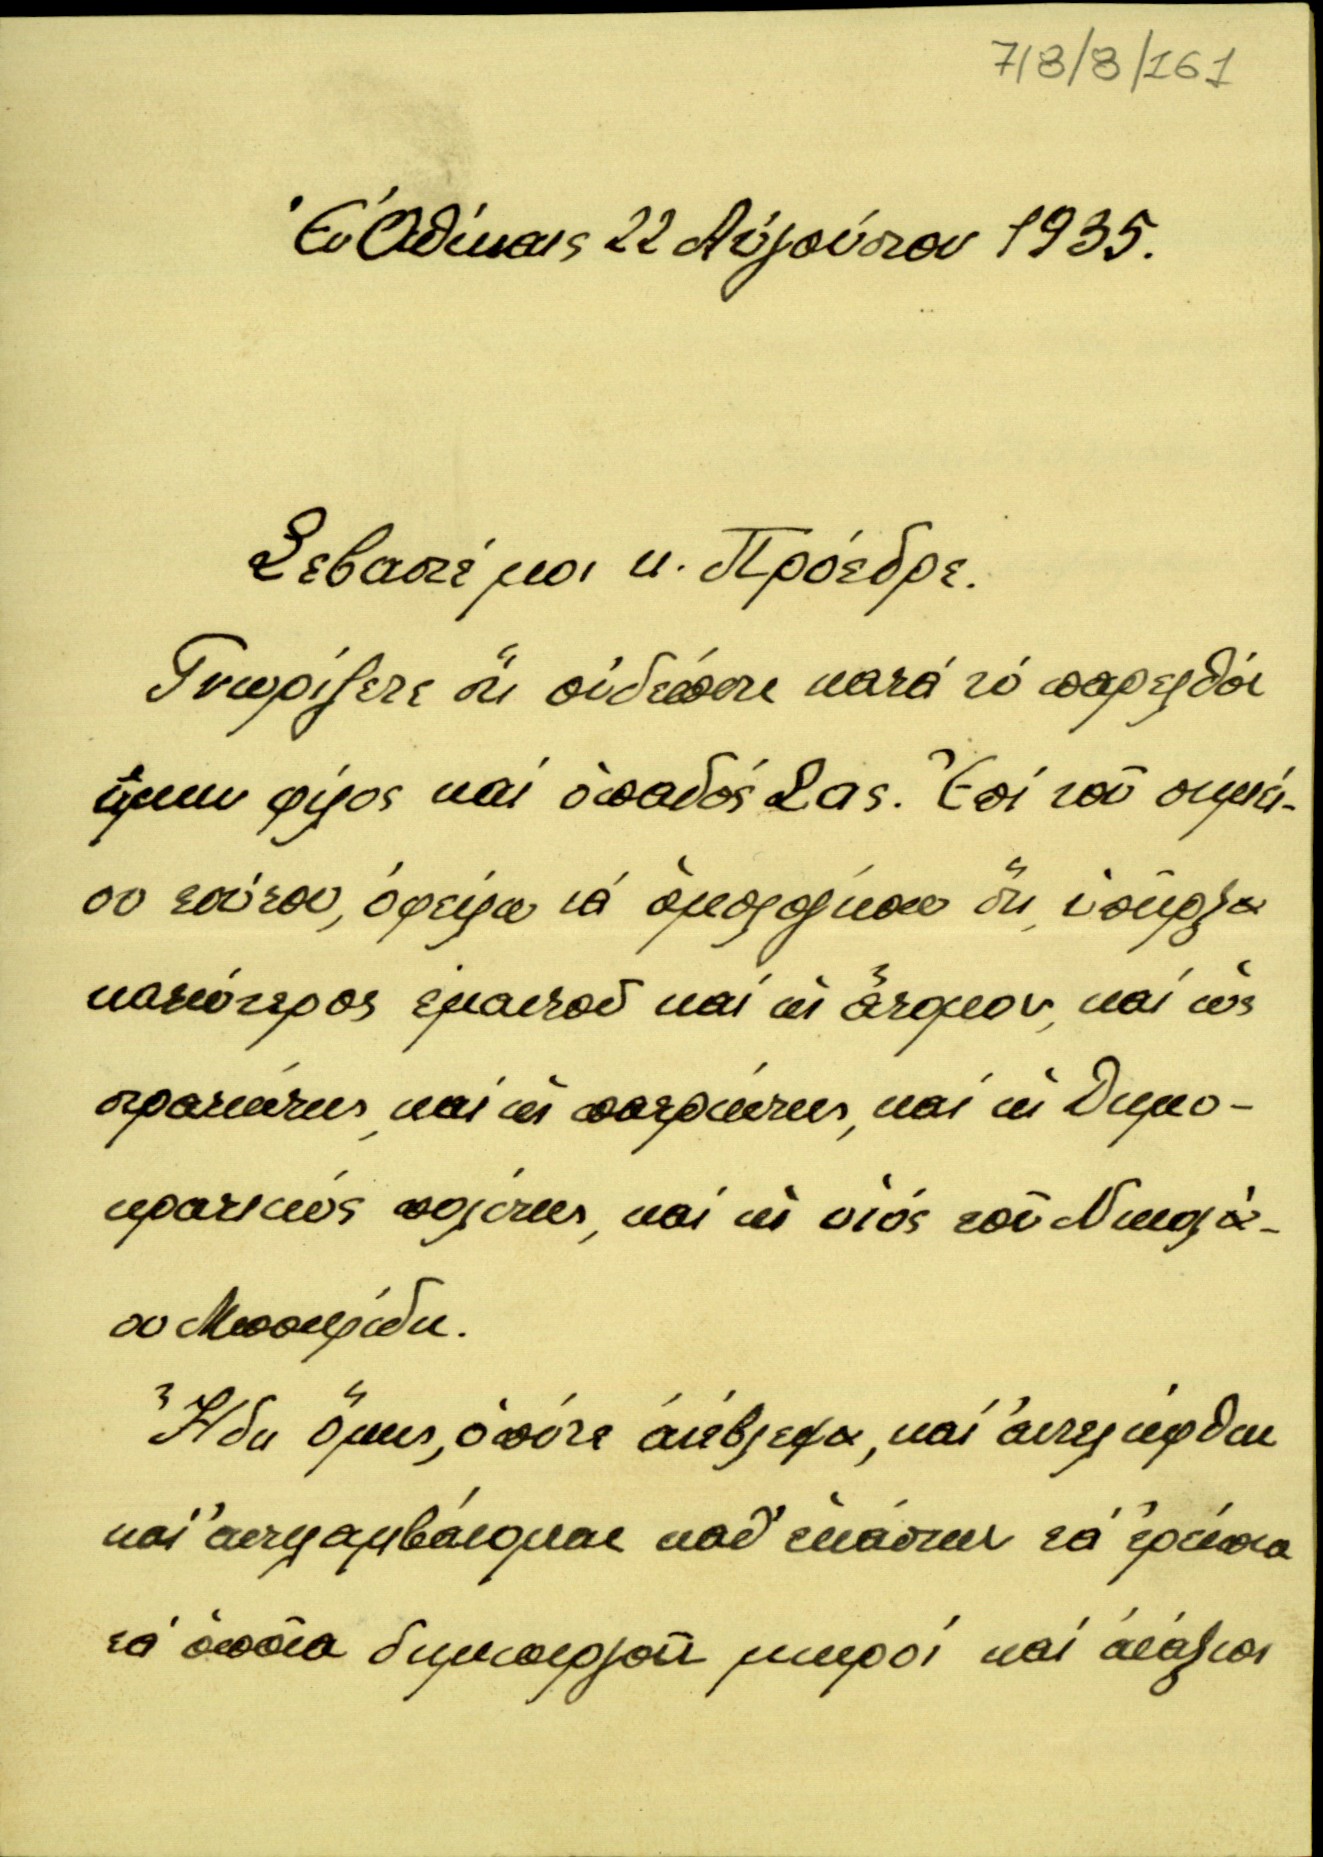 7/8/8/161
Ἐν Ἀθήναις 22 Αὐγούστου 1935.
Σεβαστέ μοι κ. Πρόεδρε.
Γνωρίζετε ὅτι οὐδέποτε κατά τό παρελθόν
ἤμην φίλος καί ὀπαδός Σας. Ἐπί τοῦ σημεί-
ου τούτου, ὀφείλω νά ὁμολογήσω ὅτι, ὑπῆρξα
κατώτερος ἐμαυτοῦ καί ὡς ἄτομον, καί ὡς
στρατιώτης, καί ὡς πατριώτης, καί ὡς Δημο-
κρατικός πολίτης, καί ὡς υἱός τοῦ Νικολά-
ου
Ἤδη ὅμως, ὁπότε ἀνέβλεψα, καί ἀντελήφθην
καί ἀντιλαμβάνομαι καθ' ἑκάστην τά ἐρείπια
τά ὁποῖα δημιουργοῦν μικροί καί ἀνάξιοι